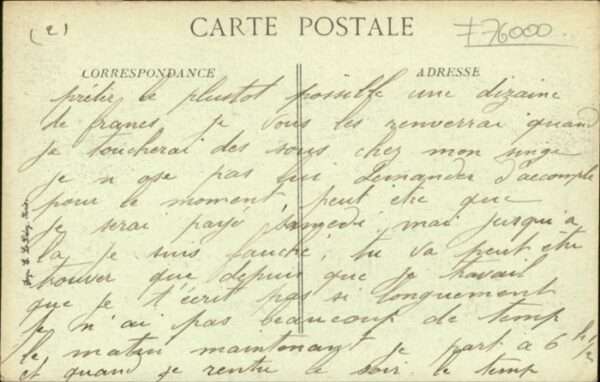 (2)
CARTE POSTALE
76000
CORRESPONDANCE
ADRESSE
prêter le plustot possible une dizaine
de francs, je vous les renverrai quand
je toucherai des sous chez mon singe
je n ose pas lui demander d'acompte
pour le moment, peut etre que
je serai payé samedi mai jusqu'a
la je suis fauché, tu va peut être
trouver que depuis que je travail
que je t'écrit pas si longuement
je n'ai pas beaucoup de temp
le matin maintenant je part à 6 h 1/2
et quand je rentre le soir le temp